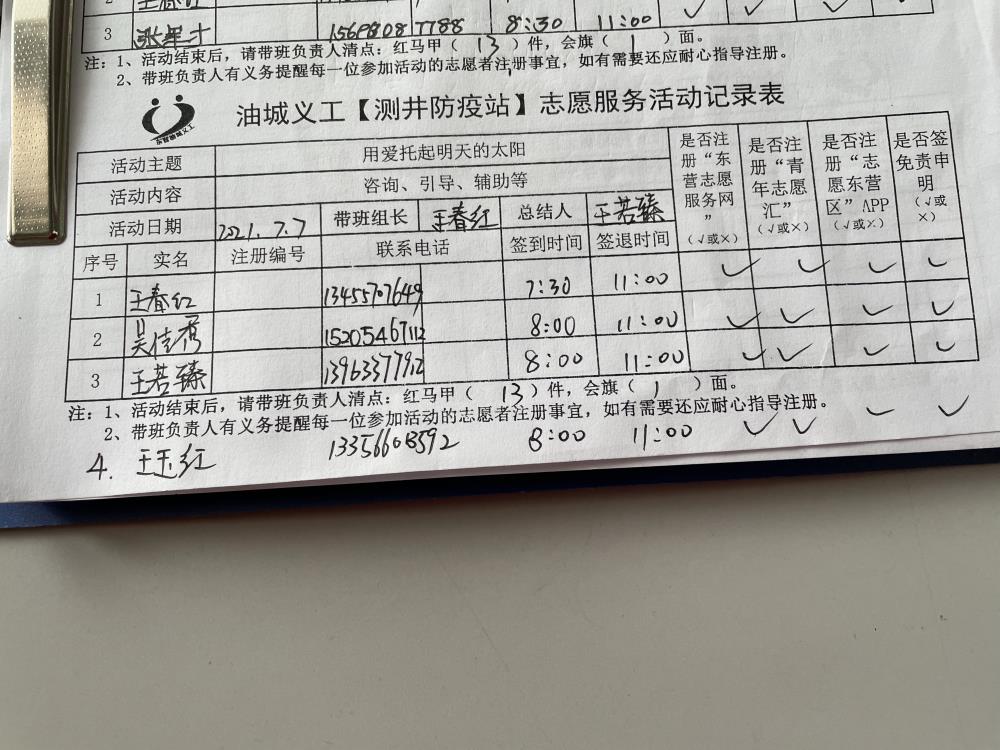 3 张军才 15698087788 8:30 11:00 ✓ ✓ ✓ ✓
注：1、活动结束后，请带班负责人清点：红马甲（ 13 ）件，会旗（ 1 ）面。
2、带班负责人有义务提醒每一位参加活动的志愿者注册事宜，如有需要还应耐心指导注册。
油城义工【测井防疫站】志愿服务活动记录表
活动主题 用爱托起明天的太阳 是否注册“东营志愿服务网”（√或×） 是否注册“青年志愿汇”（√或×） 是否注册“志愿东营区”APP（√或×） 是否签免责申明（√或×）
活动内容 咨询、引导、辅助等
活动日期 2021.7.7 带班组长 王春红 总结人 王若臻
序号 实名 注册编号 联系电话 签到时间 签退时间
1 王春红 13455707649 7:30 11:00 ✓ ✓ ✓ ✓
2 吴佳秀 15205467112 8:00 11:00 ✓ ✓ ✓ ✓
3 王若臻 13963377912 8:00 11:00 ✓ ✓ ✓ ✓
注：1、活动结束后，请带班负责人清点：红马甲（ 13 ）件，会旗（ 1 ）面。
2、带班负责人有义务提醒每一位参加活动的志愿者注册事宜，如有需要还应耐心指导注册。
4. 王玉红 13356608592 8:00 11:00 ✓ ✓ ✓ ✓